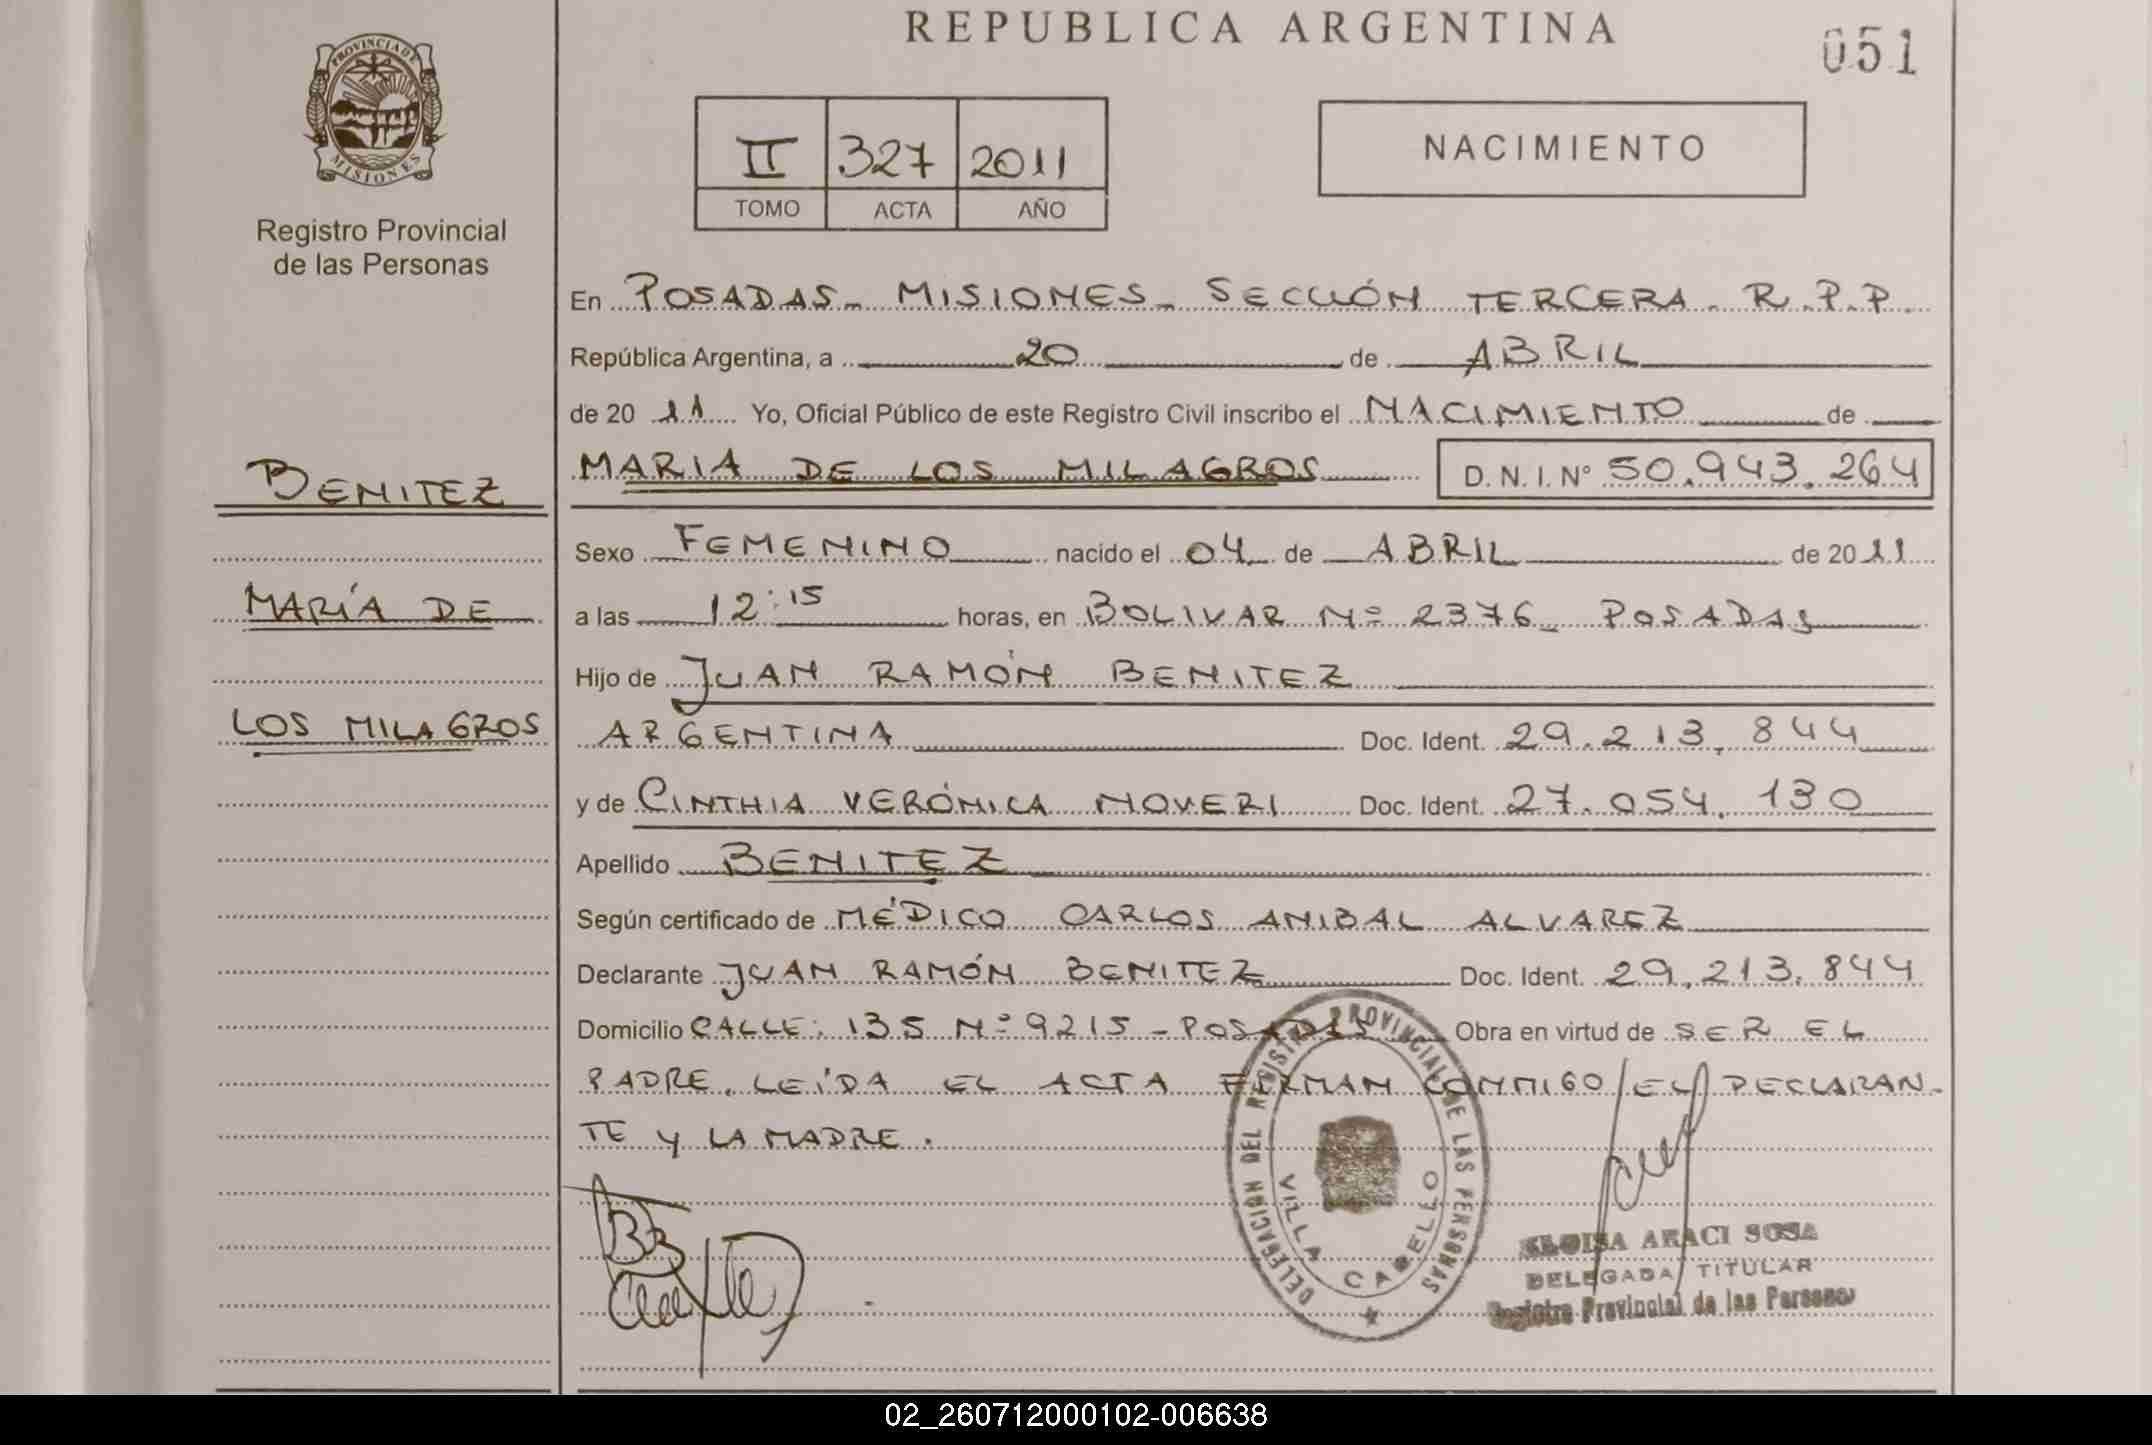 REPUBLICA ARGENTINA
051
PROVINCIA DE
MISIONES
Registro Provincial
de las Personas
II 327 2011
TOMO ACTA AÑO
NACIMIENTO
En POSADAS - MISIONES - SECCIÓN TERCERA - R.P.P.
República Argentina, a 20 de ABRIL
de 20 11 Yo, Oficial Público de este Registro Civil inscribo el NACIMIENTO de
MARIA DE LOS MILAGROS D.N.I. N° 50.943.264
BENITEZ
MARÍA DE
LOS MILAGROS
Sexo FEMENINO nacido el 04 de ABRIL de 2011
a las 12:15 horas, en BOLIVAR Nº 2376 - POSADAS
Hijo de JUAN RAMÓN BENITEZ
ARGENTINA Doc. Ident. 29.213.844
y de CINTHIA VERÓNICA NOVERI Doc. Ident. 27.054.130
Apellido BENITEZ
Según certificado de MÉDICO CARLOS ANIBAL ALVAREZ
Declarante JUAN RAMÓN BENITEZ Doc. Ident. 29.213.844
Domicilio CALLE: 135 Nº 9215 - POSADAS Obra en virtud de SER EL
PADRE. LEÍDA EL ACTA FIRMAN CONMIGO EL DECLARAN-
TE Y LA MADRE.
DELEGACION DEL REGISTRO PROVINCIAL DE LAS PERSONAS
VILLA CABELLO
ELOISA ARACI SOSA
DELEGADA TITULAR
Registro Provincial de las Personas
02_260712000102-006638